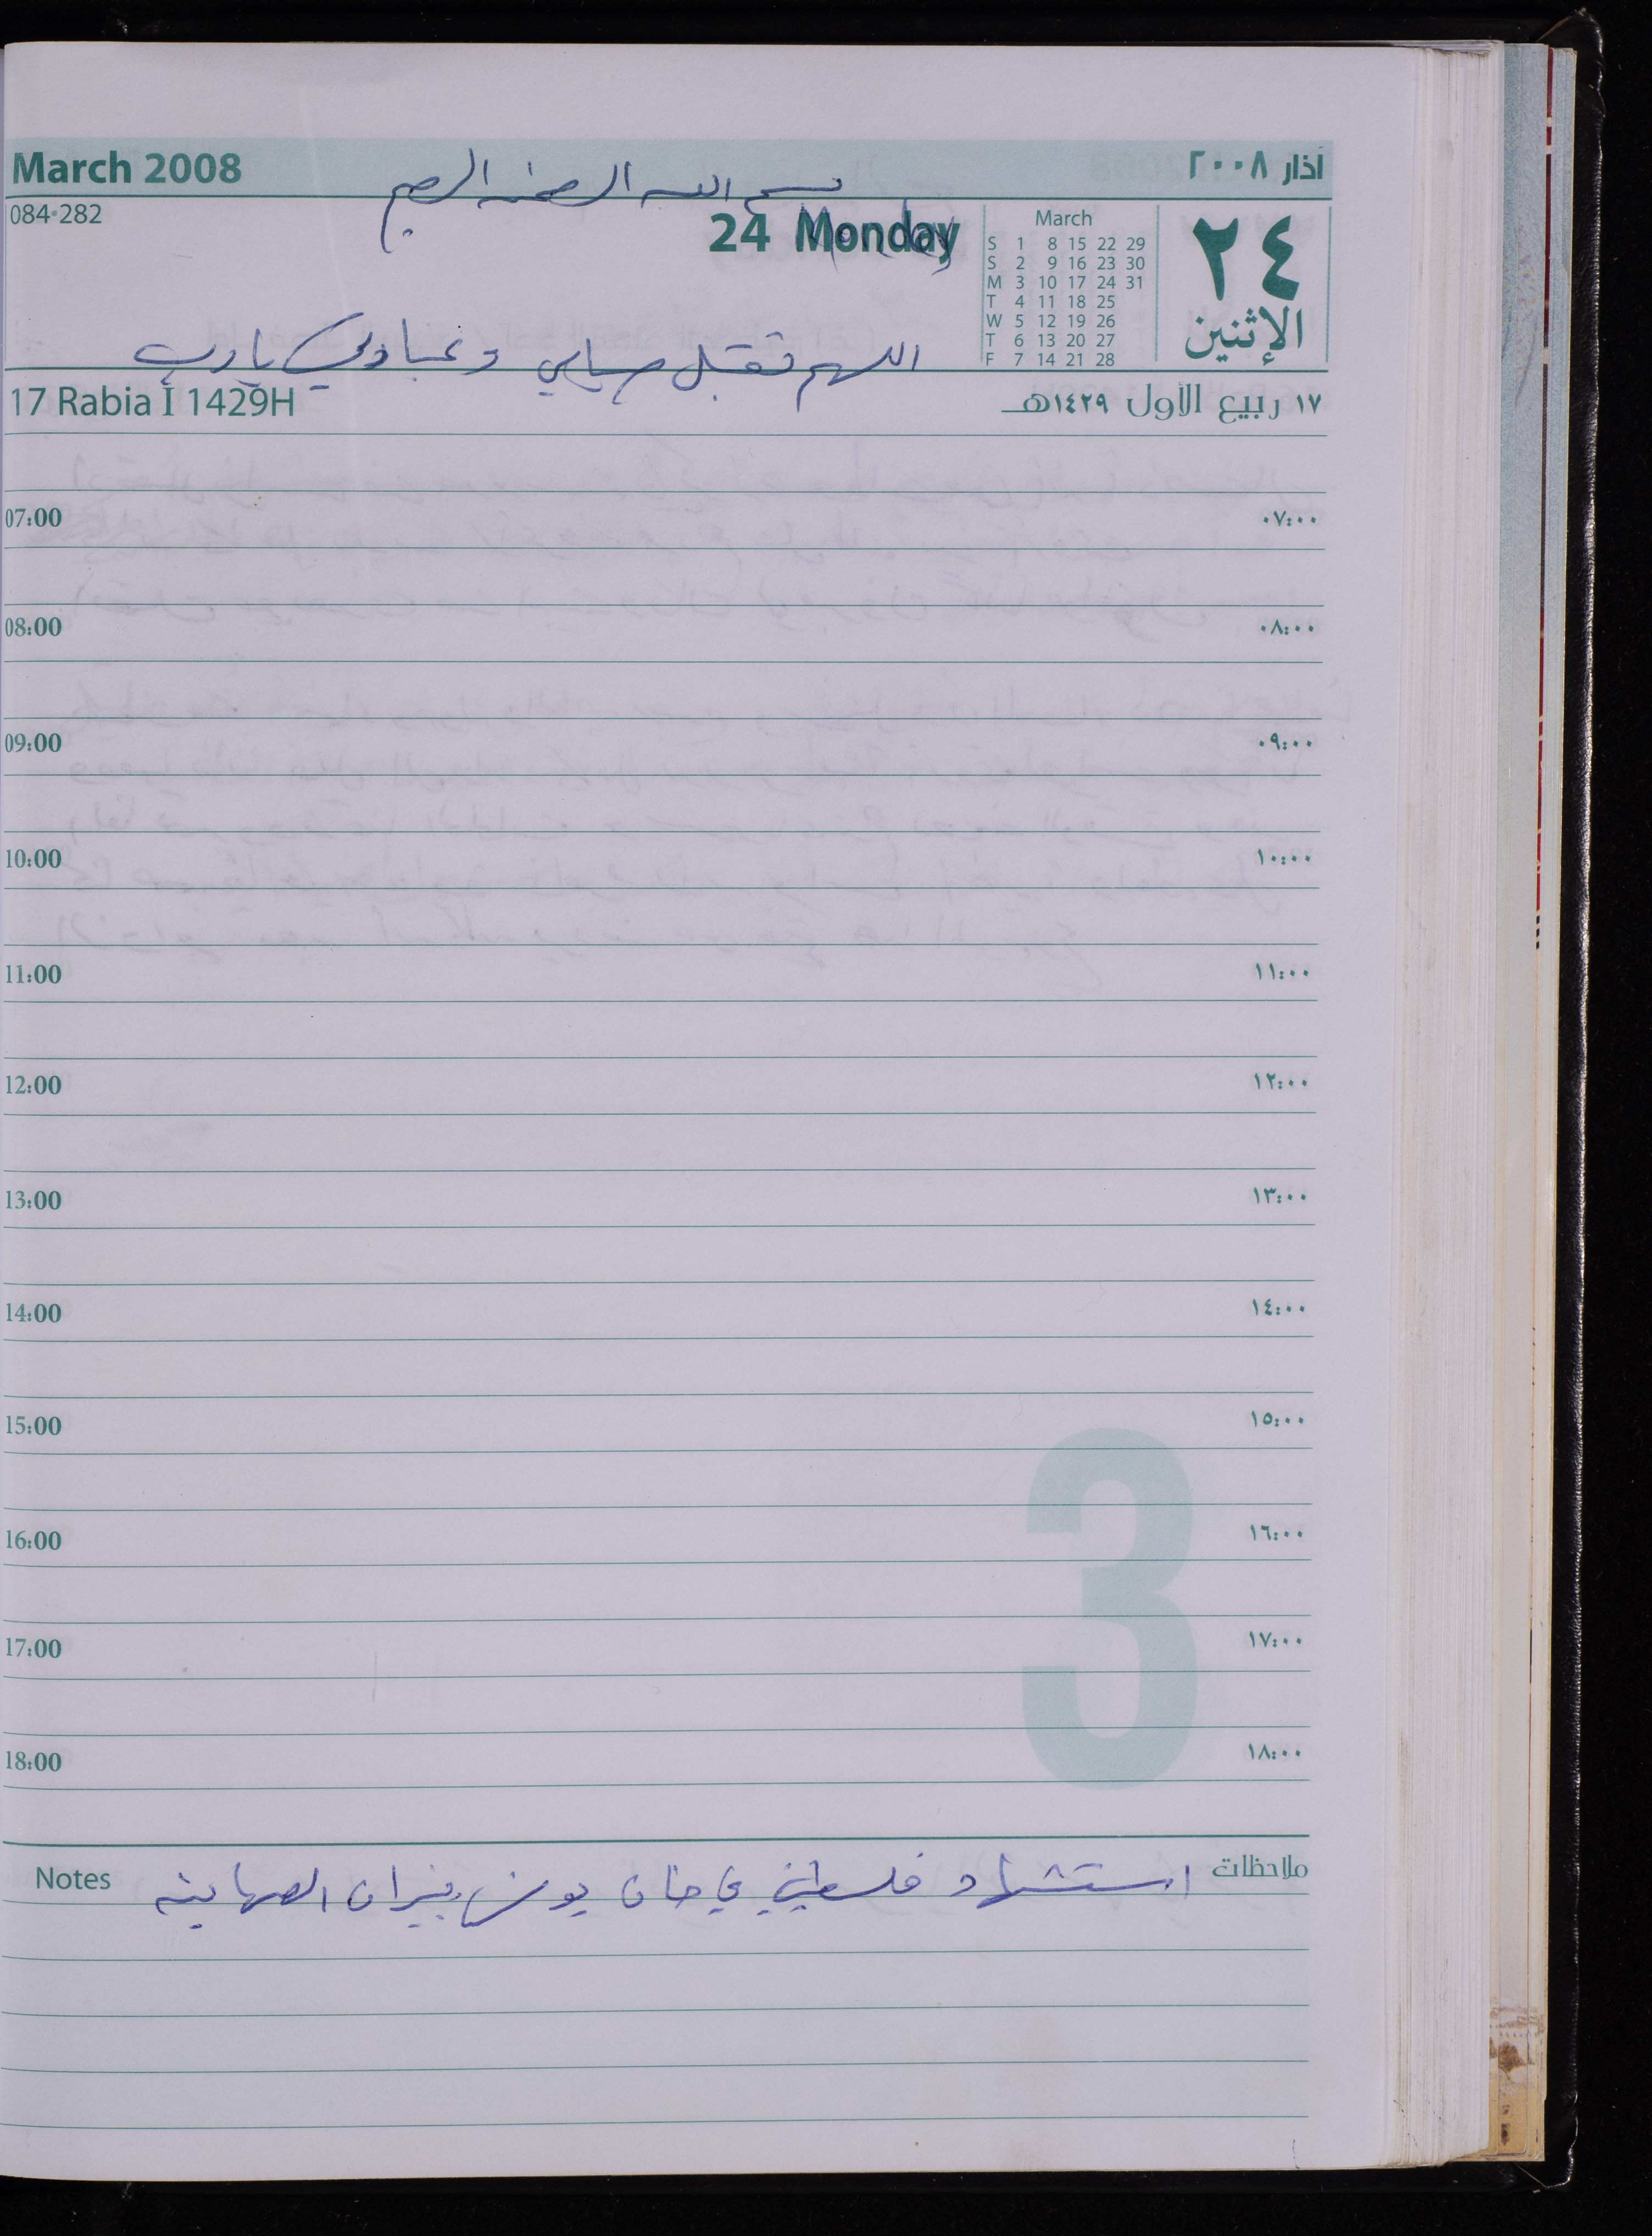 March 2008 بسم الله الرحمن الرحيم آذار ٢٠٠٨
084-282 24 Monday
March
S 1 8 15 22 29
S 2 9 16 23 30
M 3 10 17 24 31
T 4 11 18 25
W 5 12 19 26
T 6 13 20 27
F 7 14 21 28
٢٤
الإثنين
اللهم تقبل صيامي وعبادتي يا رب
17 Rabia I 1429H ١٧ ربيع الأول ١٤٢٩هـ
07:00 ٠٧:٠٠
08:00 ٠٨:٠٠
09:00 ٠٩:٠٠
10:00 ١٠:٠٠
11:00 ١١:٠٠
12:00 ١٢:٠٠
13:00 ١٣:٠٠
14:00 ١٤:٠٠
15:00 ١٥:٠٠
16:00 ١٦:٠٠
17:00 ١٧:٠٠
18:00 ١٨:٠٠
3
Notes ملاحظات
استشهاد فلسطيني في خان يونس بنيران الصهاينة